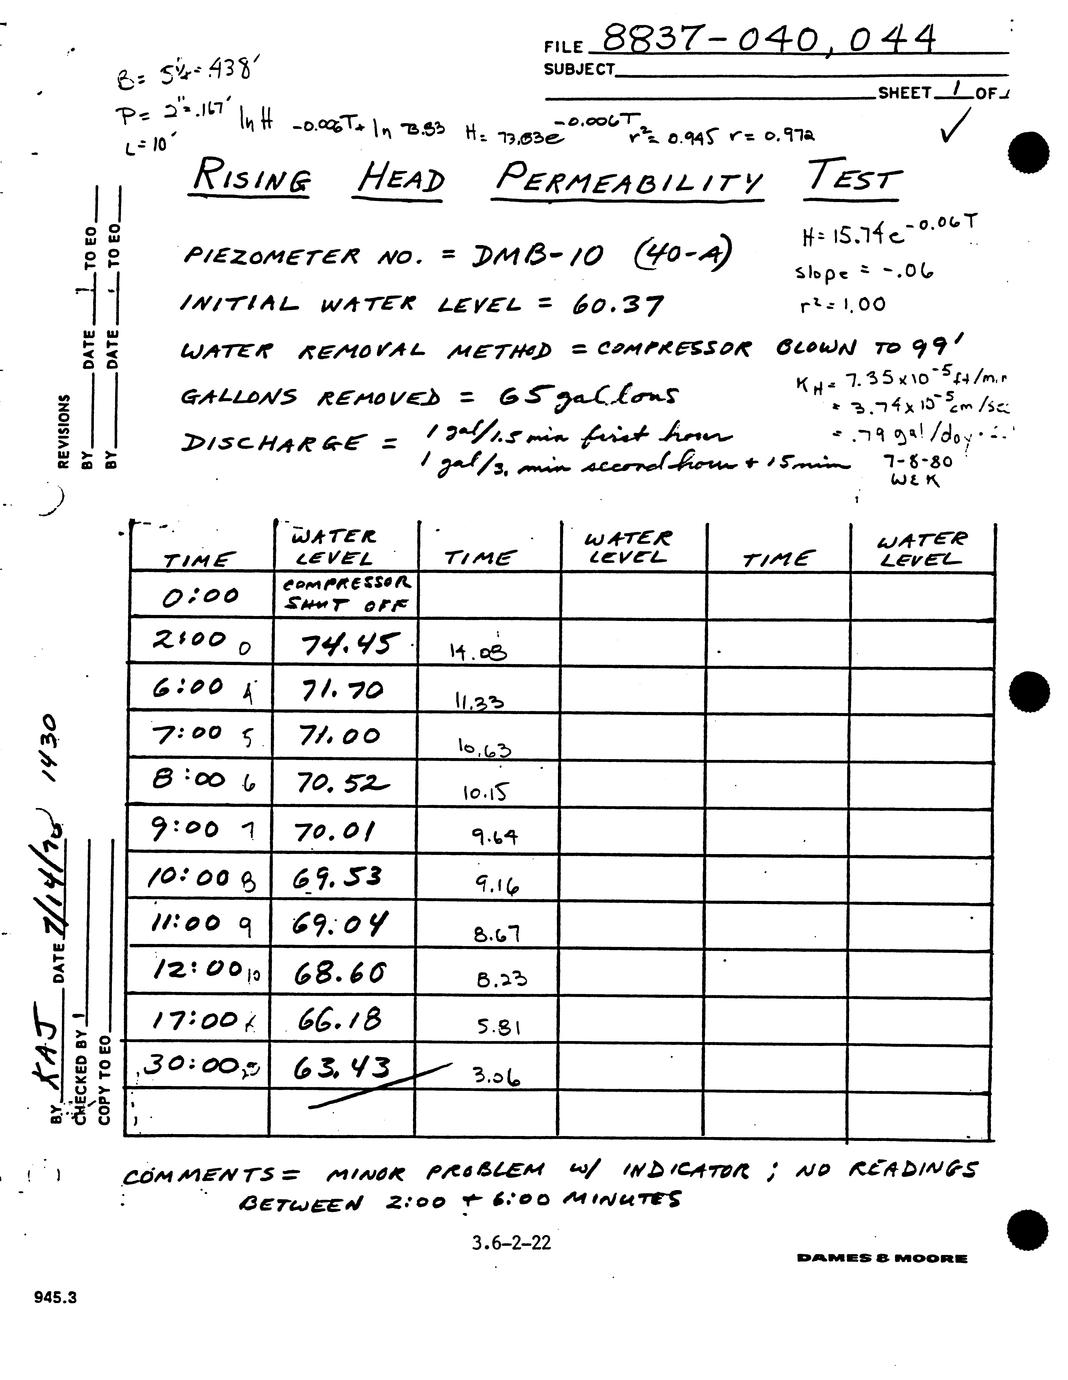 FILE 8837-040, 044
SUBJECT
SHEET 1 OF 1
B = 5¼ = .438'
P = 2" = .167'
L = 10'
ln H -0.006T + ln 73.83 H = 73.83e^-0.006T r² = 0.945 r = 0.972
✓
RISING HEAD PERMEABILITY TEST
H = 15.74e^-0.06T
slope = -.06
r² = 1.00
PIEZOMETER NO. = DMB-10 (40-A)
INITIAL WATER LEVEL = 60.37
WATER REMOVAL METHOD = COMPRESSOR BLOWN TO 99'
GALLONS REMOVED = 65 gallons
DISCHARGE = 1 gal/1.5 min first hour
1 gal/3. min second hour + 15 min
KH = 7.35 x 10^-5 ft/min
= 3.74 x 10^-5 cm/sec
= .79 gal/day
7-8-80
WEK
REVISIONS
BY DATE TO EO
BY DATE TO EO
TIME WATER LEVEL TIME WATER LEVEL TIME WATER LEVEL
0:00 COMPRESSOR SHUT OFF
2:00 0 74.45 14.08
6:00 4 71.70 11.33
7:00 5 71.00 10.63
8:00 6 70.52 10.15
9:00 7 70.01 9.64
10:00 8 69.53 9.16
11:00 9 69.04 8.67
12:00 10 68.60 8.23
17:00 66.18 5.81
30:00 63.43 3.06
BY KAJ DATE 7/14/78 1430
CHECKED BY
COPY TO EO
COMMENTS = MINOR PROBLEM W/ INDICATOR ; NO READINGS
BETWEEN 2:00 + 6:00 MINUTES
3.6-2-22
DAMES & MOORE
945.3